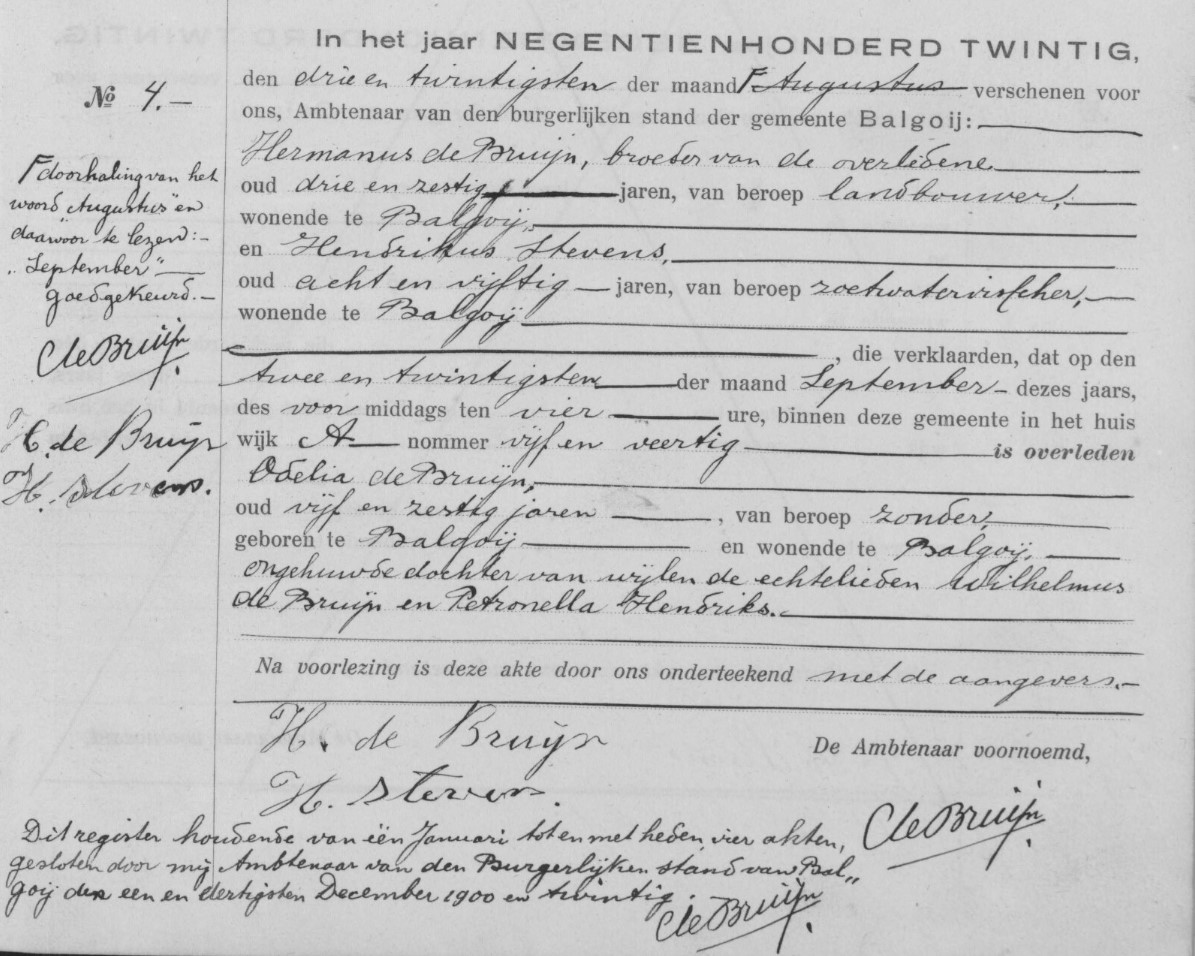 In het jaar NEGENTIENHONDERD TWINTIG,
No 4.-
den drie en twintigsten der maand F Augustus verschenen voor
ons, Ambtenaar van den burgerlijken stand der gemeente Balgoij:
Hermanus de Bruijn, broeder van de overledene
oud drie en zestig jaren, van beroep landbouwer,
wonende te Balgoij,
en Hendrikus Stevens,
oud acht en vijftig jaren, van beroep zoetwatervisscher,
wonende te Balgoij
, die verklaarden, dat op den
twee en twintigsten der maand September dezes jaars,
des voor middags ten vier ure, binnen deze gemeente in het huis
wijk A nommer vijf en veertig is overleden
Odelia de Bruijn,
oud vijf en zestig jaren , van beroep zonder,
geboren te Balgoij en wonende te Balgoij,
ongehuwde dochter van wijlen de echtelieden Wilhelmus
de Bruijn en Petronella Hendriks.
F doorhaling van het
woord "Augustus" en
daarvoor te lezen:-
"September"
goedgekeurd.-
CdeBruijn
H. de Bruijn
H. Stevens.
Na voorlezing is deze akte door ons onderteekend met de aangevers.-
H. de Bruijn
De Ambtenaar voornoemd,
H. Stevens.
CdeBruijn
Dit register houdende van één Januari tot en met heden vier akten,
gesloten door mij Ambtenaar van den Burgerlijken stand van Bal„
goij den een en dertigsten December 1900 en twintig.
CdeBruijn